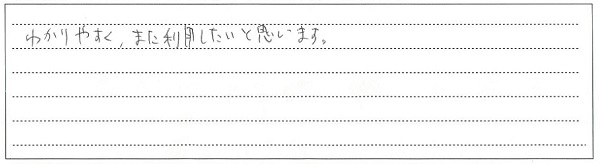 わかりやすく,また利用したいと思います。